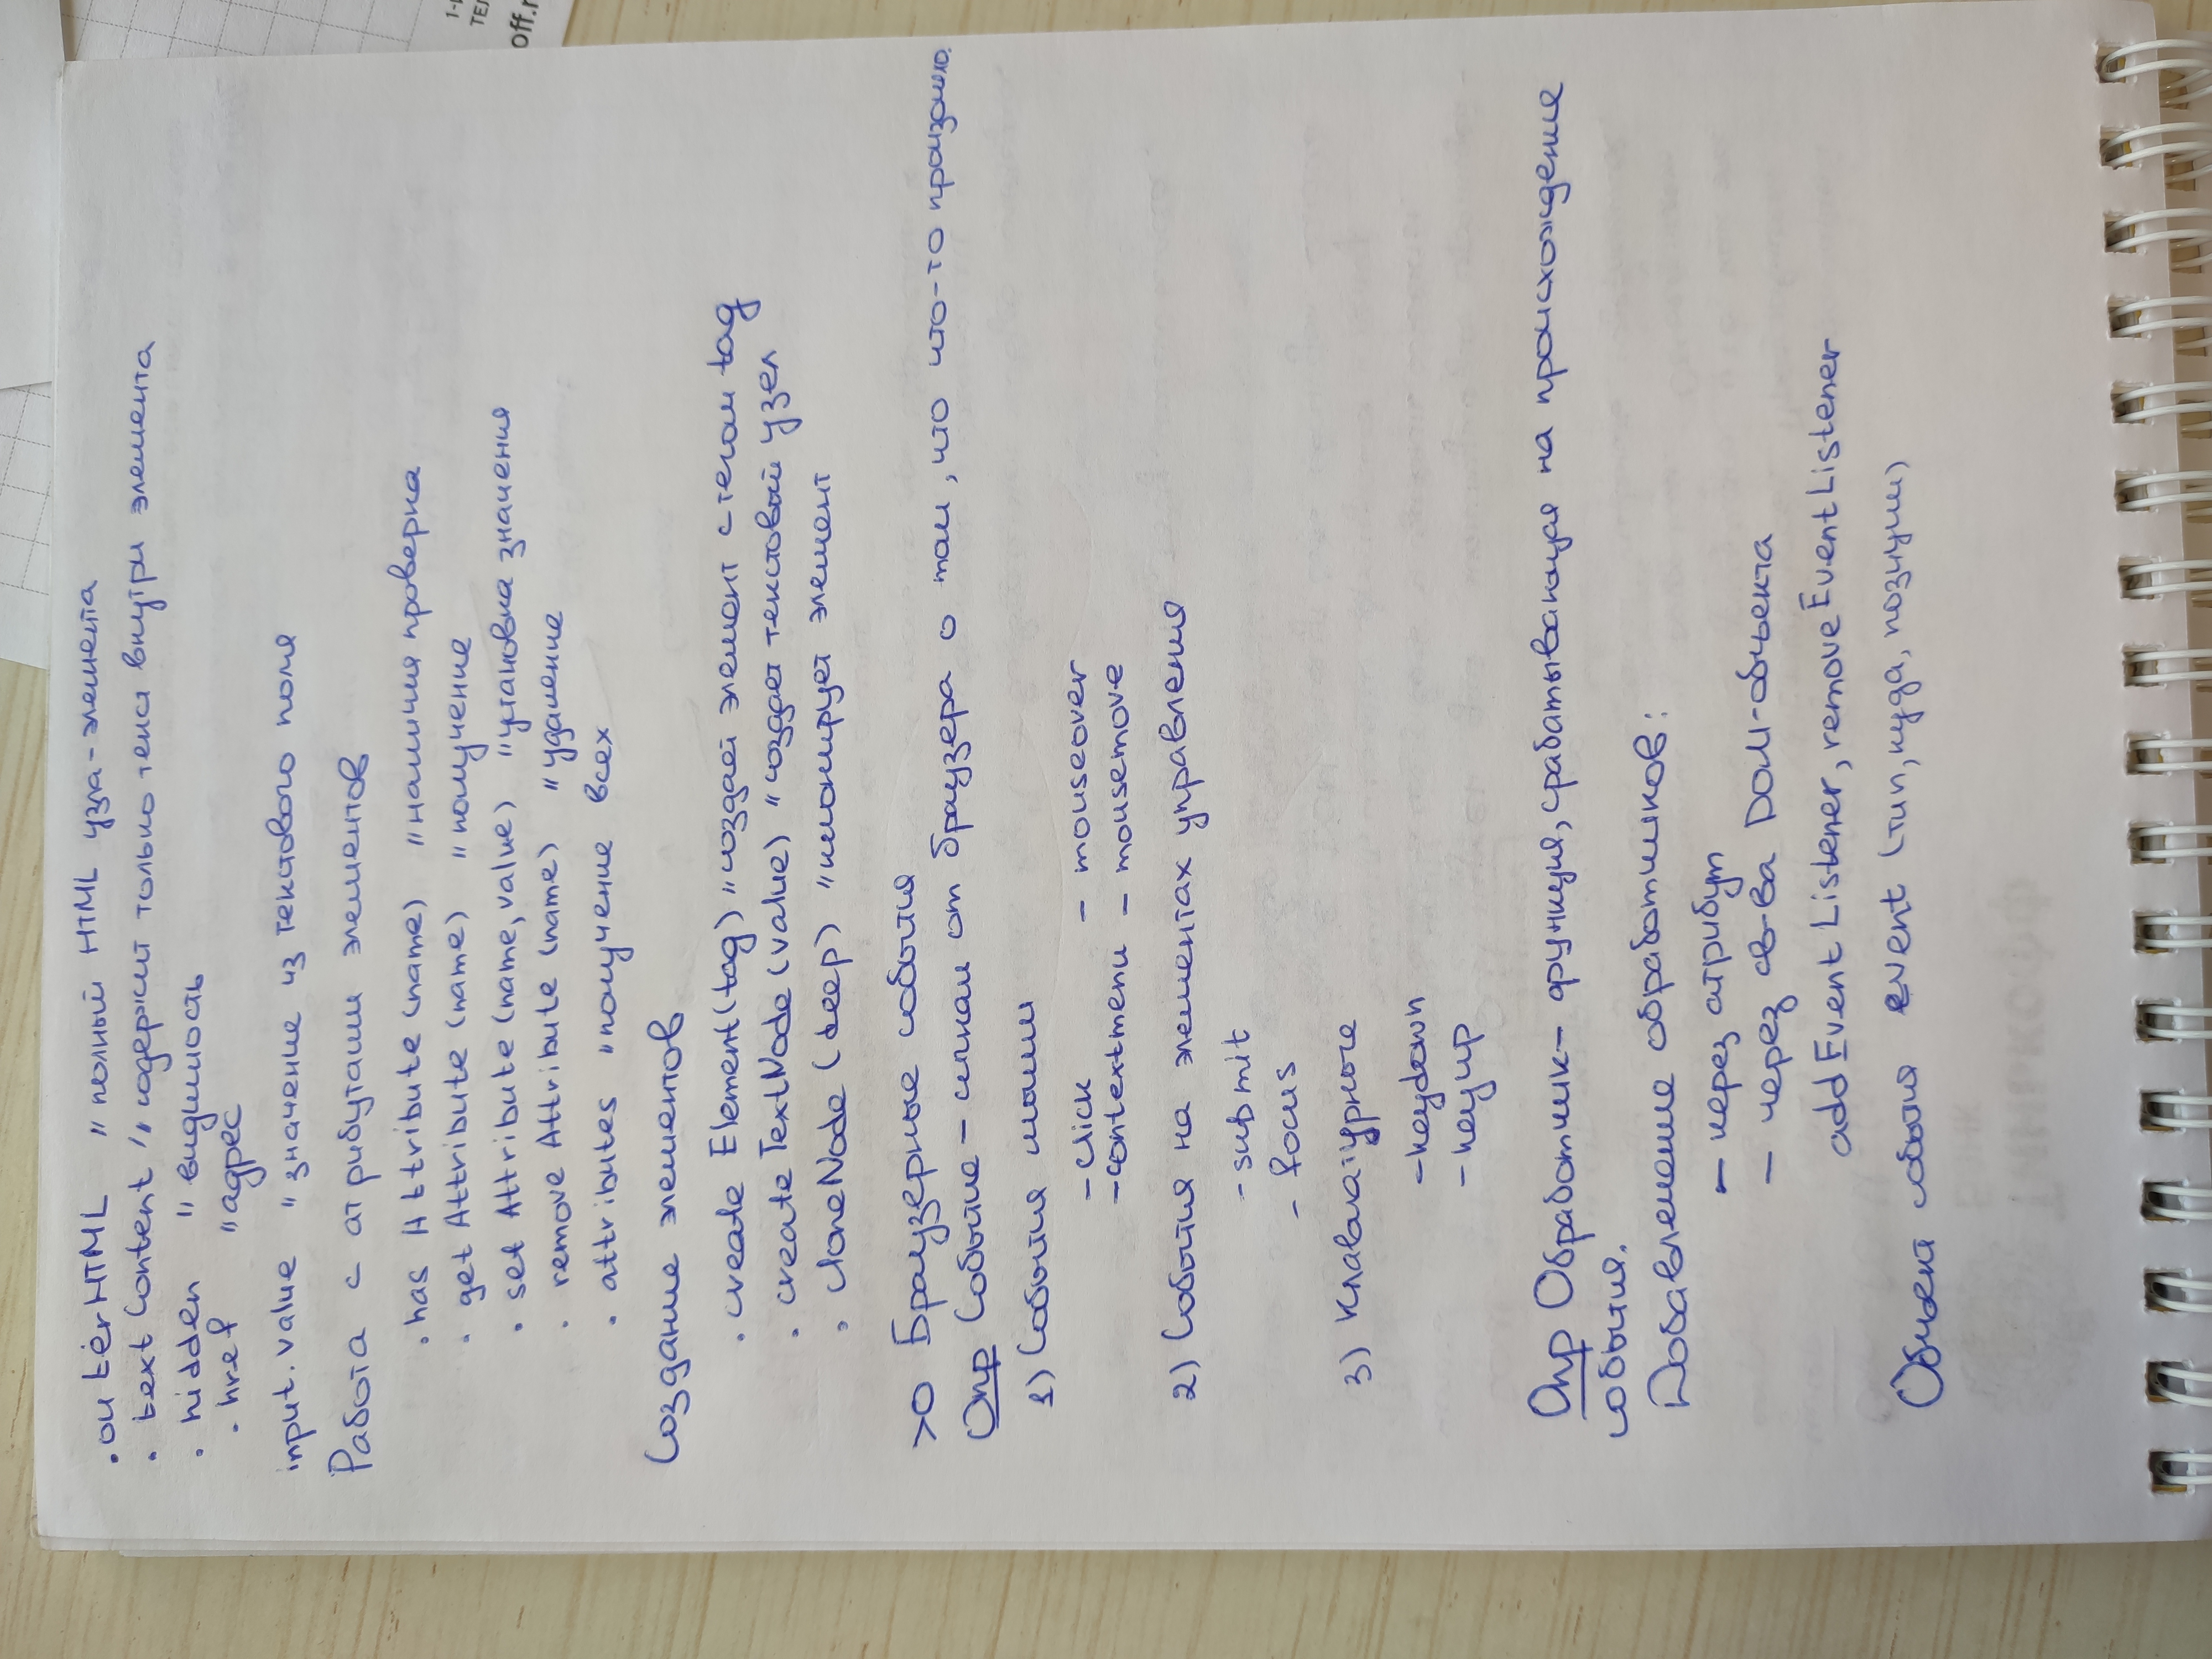 .outerHTML // полный HTML узла-элемента
. textContent // содержит только текст внутри элемента
. hidden // видимость
. href // адрес
input.value // значение из текстового поля
Работа с атрибутами элементов
. hasAttribute (name) // наличия проверка
. getAttribute (name) // получение
. setAttribute (name, value) // установка значения
. removeAttribute (name) // удаление
. attributes // получение всех
Создание элементов
. createElement (tag) // создает элемент с тегом tag
. createTextNode (value) // создает текстовый узел
. cloneNode (deep) // клонирует элемент
>O Браузерные события
Опр Событие - сигнал от браузера о том, что что-то произошло.
1) События мыши
- click - mouseover
- contextmenu - mousemove
2) События на элементах управления
- submit
- focus
3) Клавиатурные
- keydown
- keyup
Опр Обработчик - функция, срабатывающая на происхождение
события.
Добавление обработчиков:
- через атрибут
- через св-ва DOM-объекта
addEventListener, removeEventListener
Объект события event (тип, куда, позиции)
1-
ТЕЛ
off.r
Банк
Тинькофф